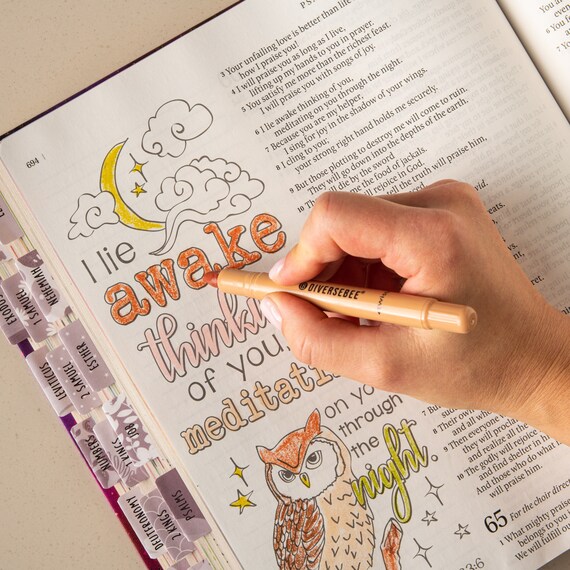 PS
3 Your unfailing love is better than life
how I praise you!
4 I will praise you as long as I live,
lifting up my hands to you in prayer.
5 You satisfy me more than the richest feast.
I will praise you with songs of joy.
6 I lie awake thinking of you,
meditating on you through the night.
7 Because you are my helper,
I sing for joy in the shadow of your wings.
8 I cling to you;
your strong right hand holds me securely.
9 But those plotting to destroy me will come to ruin.
They will go down into the depths of the earth.
10 They will die by the sword
the food of jackals.
will rejoice in God.
tell the truth will praise him,
694
I lie
awake
thinki
of you
meditati
on yo
through
the
night.
DIVERSEBEE
EXODUS
1 SAMUEL
NEHEMIAH
LEVITICUS
2 SAMUEL
ESTHER
NUMBERS
1 KINGS
JOB
DEUTERONOMY
2 KINGS
PSALMS
8 Their own
and all who
9 Then everyone
they will proclaim
and realize all the
10 The godly will rejoice
and find shelter in
And those who do what
will praise him.
65 For the choir direct
1 What mighty praise
belongs to you
We will fulfill our
3:6